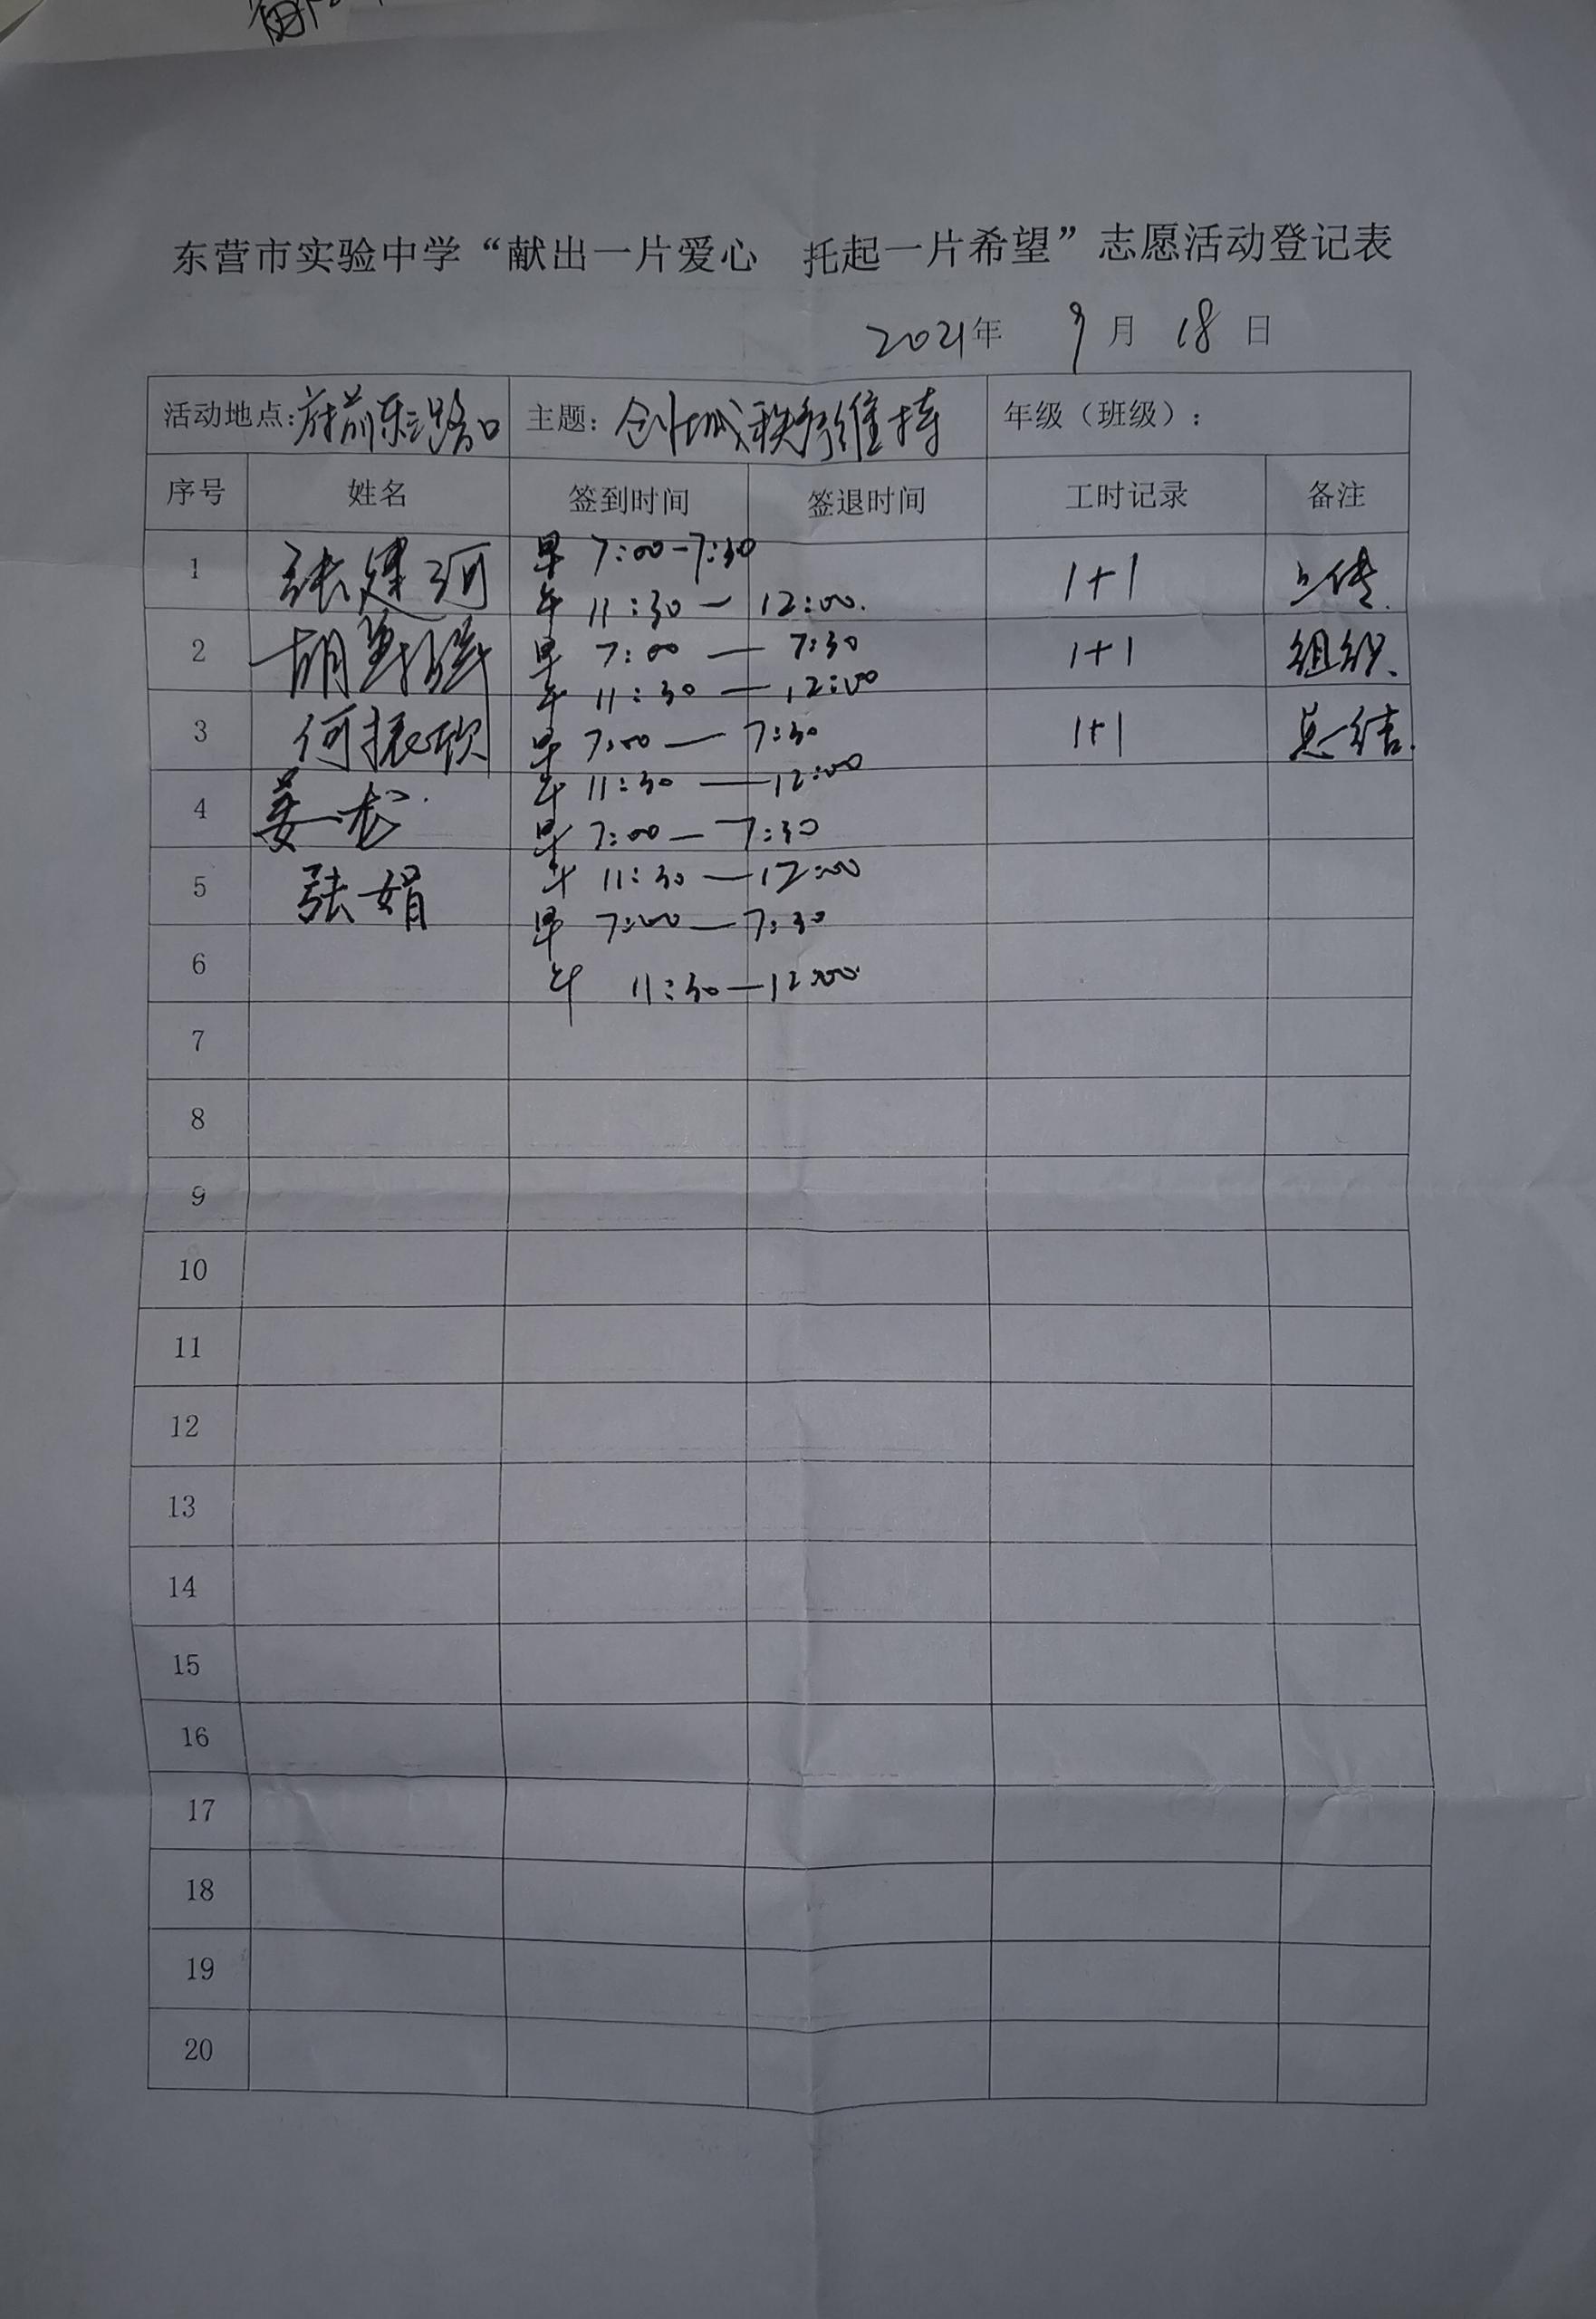 东营市实验中学“献出一片爱心 托起一片希望”志愿活动登记表
2021年 9月 18日
活动地点:府前东三路口 主题:创城秩序维持 年级（班级）:
序号 姓名 签到时间 签退时间 工时记录 备注
早 7:00-7:30
1 张建河 1+1 上传.
午 11:30-12:00.
2 胡 早 7:00—7:30 1+1 组织.
午 11:30—12:00
3 何振欣 早 7:00—7:30 1+1 总结.
午 11:30—12:00
4 姜龙
早 7:00—7:30
5 张娟 午 11:30—12:00
早 7:00—7:30
6
午 11:30—12:00
7
8
9
10
11
12
13
14
15
16
17
18
19
20